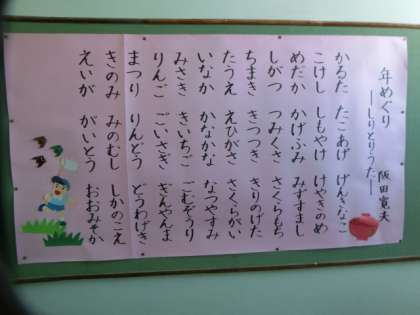 年めぐり
―しりとりうた― 阪田寛夫
かるた たこあげ げんきなこ
こけし しもやけ けやきのめ
めだか かげふみ みずすまし
しがつ つみくさ さくらもち
ちまき きつつき きりのげた
たうえ えひがさ さくらがい
いなか かなかな なつやすみ
みさき きいちご ごむぞうり
りんご ごいさぎ ぎんやんま
まつり りんどう どうわげき
きのみ みのむし しかのこえ
えいが がいとう おおみそか